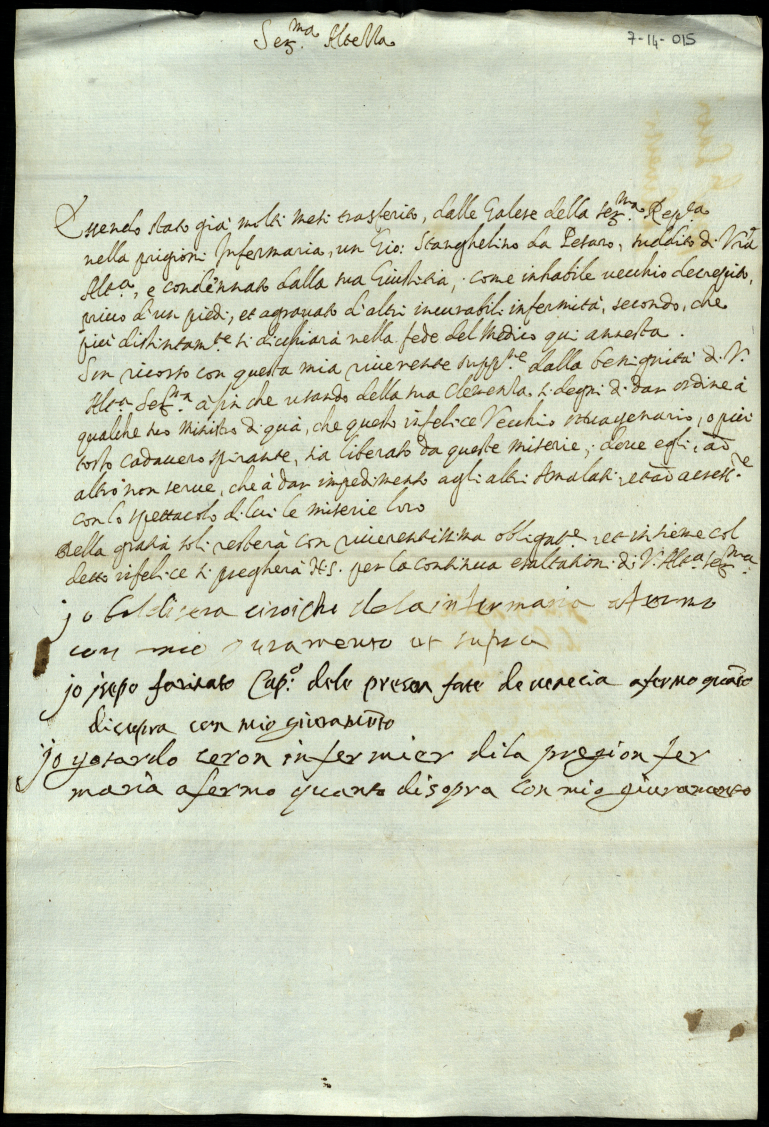 Ser.ma Altezza
7-14-015
Essendo stato già molti mesi trasferito, dalle Galere della Ser.ma Rep.ca
nella prigion Infermaria, un Gio: Stanghelino da Pesaro, suddito di Vra
Alt.a, e condennato dalla sua Giustitia, come inhabile vecchio decrepito,
privo d'un piedi, et agravato d'altri incurabili infermità, secondo, che
più distintam.te si dichiara nella fede del Medico qui annessa.
Son ricorso con questa mia riverente supp.ce dalla benignità di V.
Alt.a Ser.ma a fin che usando della sua Clemenza si degni di dar ordine à
qualche suo Ministro di quà, che questo infelice Vecchio ottuagenario, o più
tosto cadavero spirante, sia liberato da queste miserie, dove egli, ad
altro non serve, che à dar impedimento agli altri Amalati, et ad
con lo spettacolo di lui le miserie loro
Della gratia soli resterà con riverentissima obligat.e et insieme col
detto infelice si pregherà N.S. per la continua esaltation di V. Alt.a Ser.ma
jo baldisera ciroicho de la infermaria afermo
con mio iuramento ut supra
jo isepo Cap.o dele preson forte de venecia afermo quanto
di supra con mio giuramento
jo ceron infermier di la preģion fer
maria afermo quanto di sopra con mio giuramento